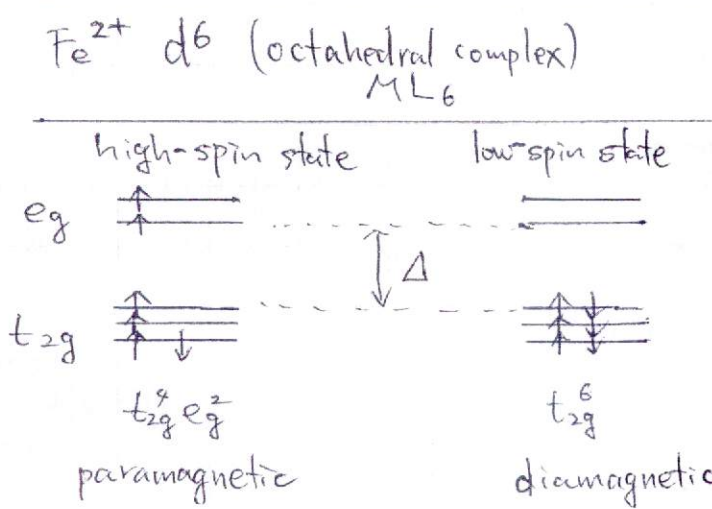 Fe²⁺ d⁶ (octahedral complex)
ML₆
high-spin state low-spin state
eg
Δ
t₂g
t₂g⁴ eg² t₂g⁶
paramagnetic diamagnetic